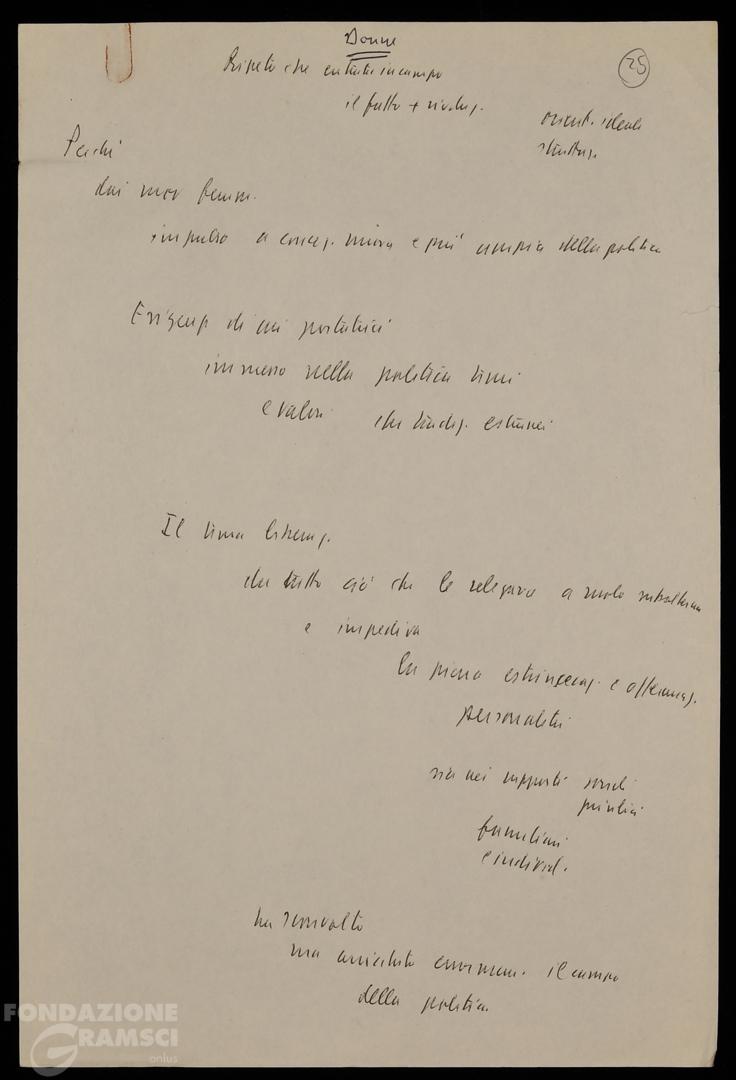 Donne
25
Ripeto che entrata in campo
il fatto + rivoluz.
orient. ideali
struttur.
Perché
dai mov femm.
impulso a concez. nuova e più ampia della politica
Esigenz di cui portatrici
immesso nella politica temi
e valori che tradiz. estranei
Il tema liberaz.
da tutto ciò che le relegava a ruolo subalterno
e impediva
la piena estrinsecaz. e affermaz.
personalità
sia nei rapporti sociali
politici
familiari
e individ.
ha sconvolto
ma arricchito enormem. il campo
della politica
FONDAZIONE
GRAMSCI
onlus